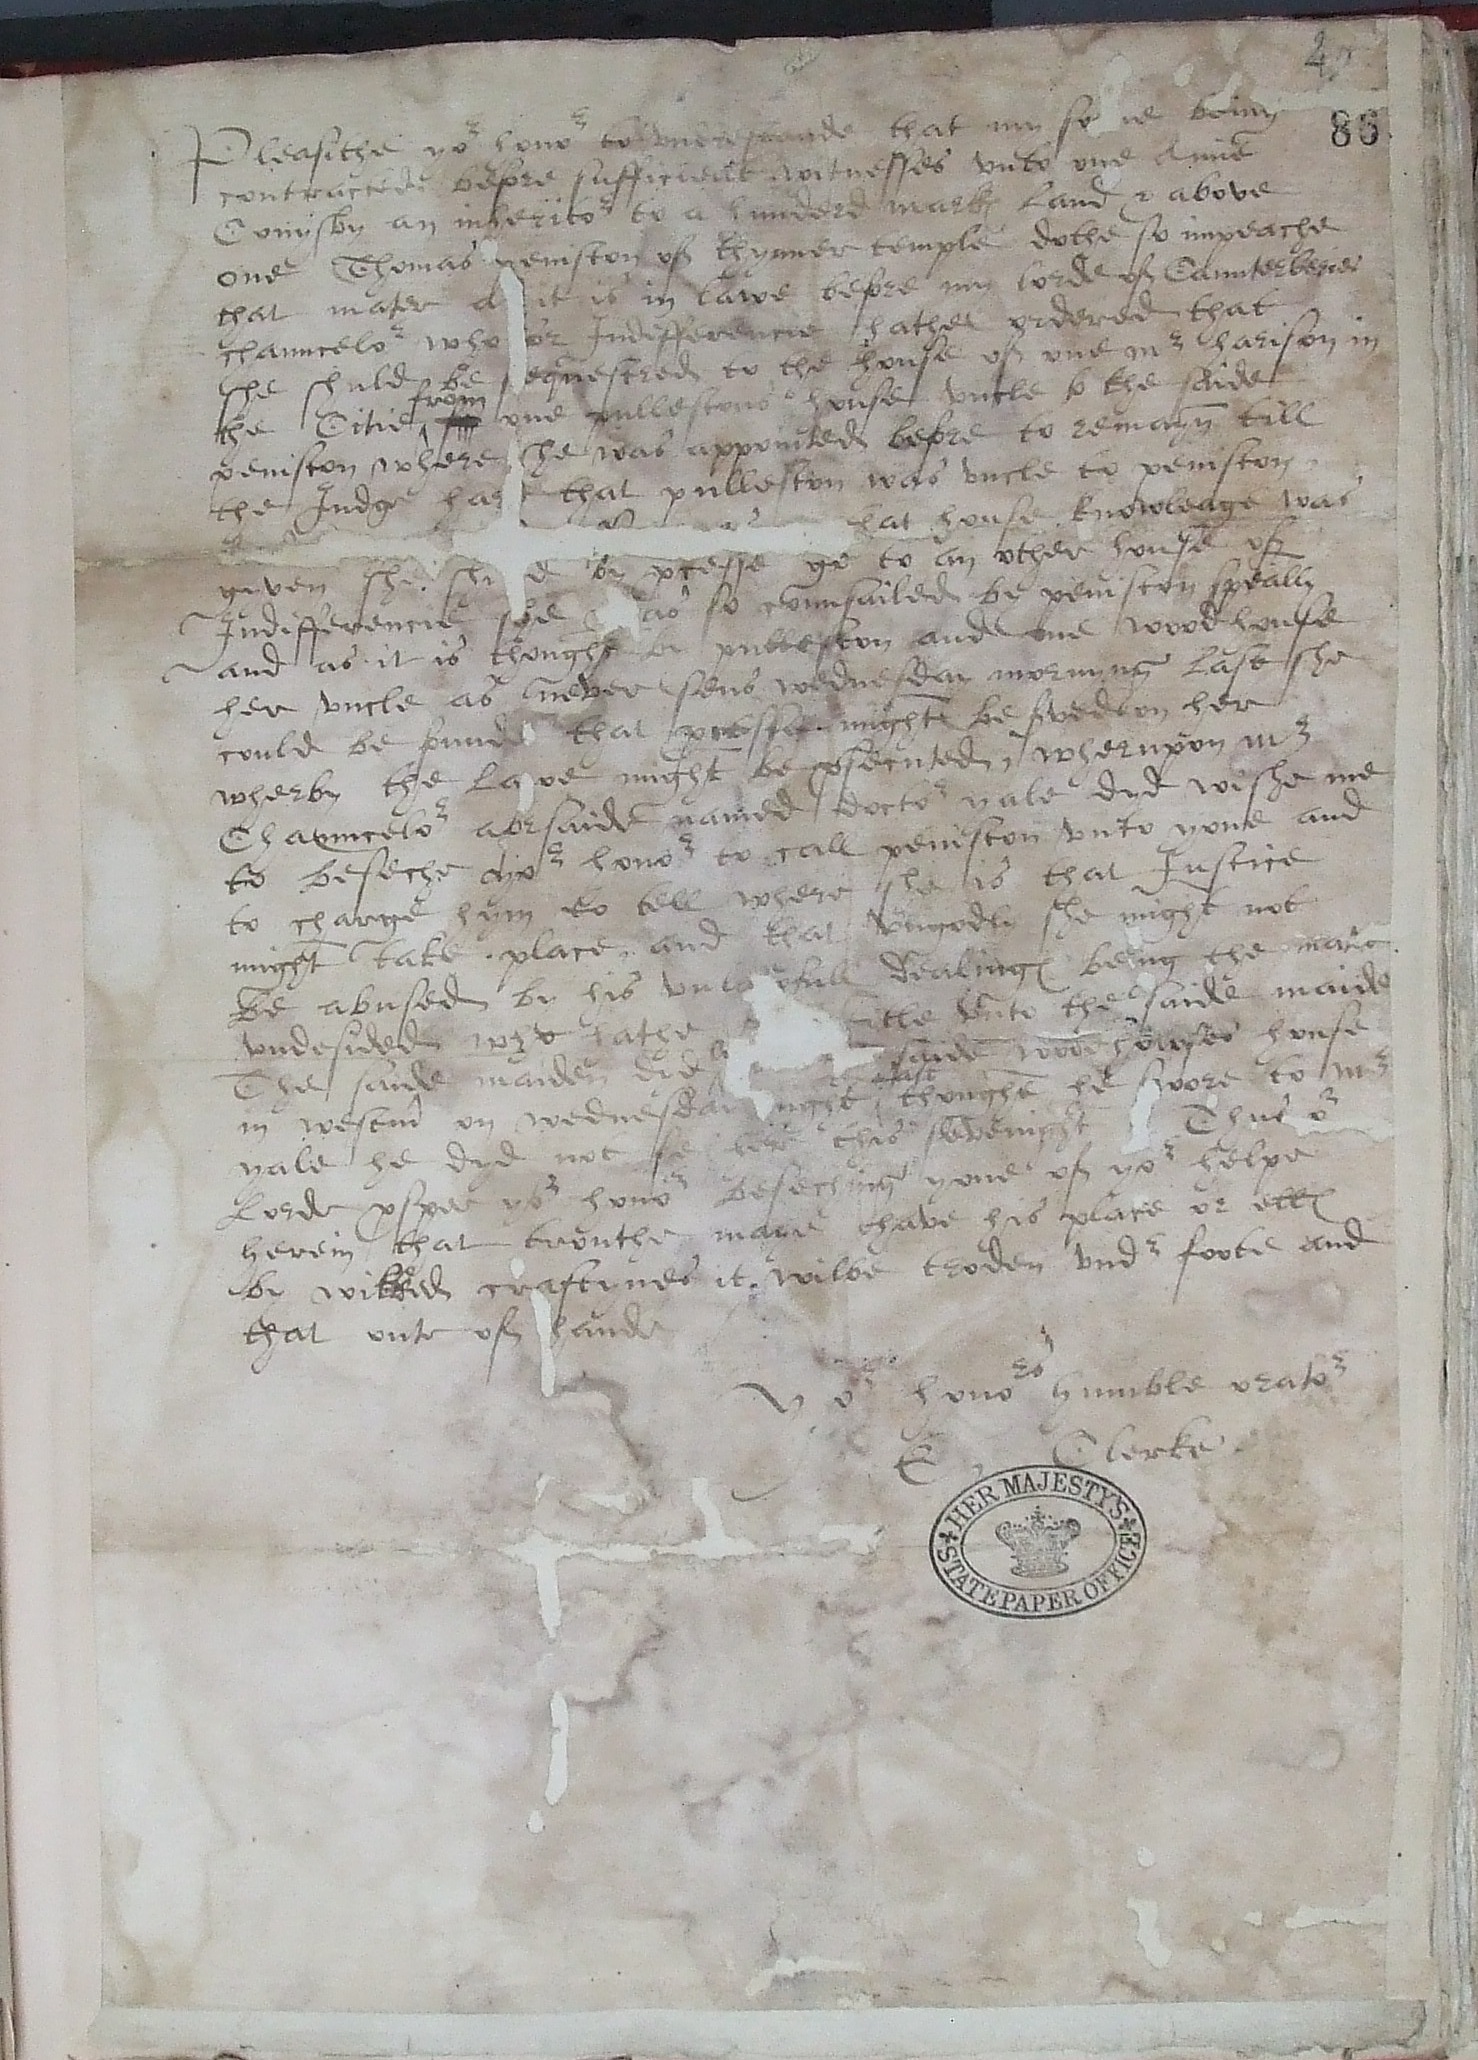 86
Pleasithe yor honor to understande that my sonne being
contracted before sufficient witnesses vnto one Anne
Conysby an inheritor to a hunderd mark land & above
one Thomas peniston of thynner temple dothe so impeache
that mater as it is in lawe before my lorde of Caunterberies
chauncelor who for Indifferencie hathe ordered that
she shuld be sequestred to the house of one mr harison in
the Citie from one pullestons house vncle to the saide
peniston where she was appointed before to remayn till
the Judge hard that pulleston was vncle to peniston
that house knowleage was
given she shuld by pcesse go to an other house of
Indifferencie she was so counsailed be peniston speally
and as it is thought be pulleston and one woodhouse
her vncle as never sens wednesday mornyng last she
could be founde that pcesse might be served on her
wherby the lawe might be psecuted, wherupon mr
Chauncelor aforsaide named doctor yale dyd wishe me
to beseche yor honor to call peniston vnto youe and
to charge hym to tell where she is that Justice
might take place and that vngodly she might not
be abused by his vnlawfull dealing being the matter
vndesided who hathe title vnto the saide maide
The saide maiden did saide woodhouses house
in westmr on wednesday night last thought he swore to mr
yale he dyd not se her this sevenight Thus or
Lorde pspere yor honor beseching youe of yor helpe
herein that trouthe maye have his place or ell
by wikked craftynes it wilbe troden vndr foote and
that oute of hande
Yor honors humble orator
E Clerke
HER MAJESTY'S STATE PAPER OFFICE